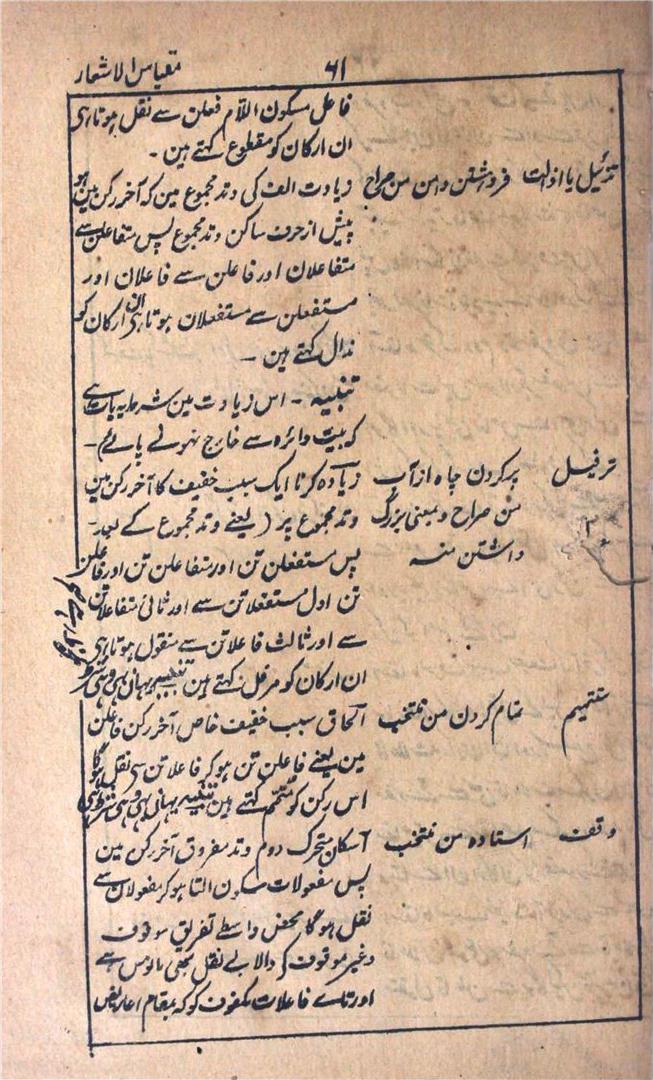 ۶۱
مقیاس الاشعار
فاعل مسکون اللام فعلن سے نقل ہوتا ہی
ان ارکان کو مقطوع کہتے ہین ۔
تذئیل یا اذالت فروداشتن دامن من صراح زیادت الف کی وتد مجموع مین کہ آخر رکن مین ہو
پیش از حرف ساکن وتد مجموع پس متفاعلن سے
متفاعلان اور فاعلن سے فاعلان اور
مستفعلن سے مستفعلان ہوتا ہی ان ارکان کو
مذال کہتے ہین ۔
تنبیہ ۔ اس زیادت مین شرط یہ بات ہے
کہ بیت دائرہ سے خارج نہونے پائے ۔
ترفیل پر کردن چاہ از آب زیادہ کرنا ایک سبب خفیف کا آخر رکن مین
من صراح و بمعنی بزرگ وتد مجموع پر (یعنے وتد مجموع کے بعد ۔
داشتن منہ پس مستفعلن تن اور متفاعلن تن اور فاعلن
تن اول مستفعلاتن سے اور ثانی متفاعلاتن
سے اور ثالث فاعلاتن سے منقول ہوتا ہی
ان ارکان کو مرفل کہتے ہین تنبیہ یہانپر بھی وہی شرط
تتمیم تمام کردن من منتخب الحاق سبب خفیف خاص آخر رکن فاعلن
مین یعنے فاعلن تن ہو کر فاعلاتن سی نقل ہوگا
اس رکن کو متمم کہتے ہین تنبیہ یہان بھی وہی شرط ہی
وقف استادہ من منتخب اسکان متحرک دوم وتد مفروق آخر رکن مین
پس مفعولات سکون التا ہو کر مفعولان سے
نقل ہو گا محض واسطے تفریق موقوف
و غیر موقوف کے والا بے نقل بھی مانوس ہے
اور تاے فاعلات مکفوف کو کہ بمقام اعاریض